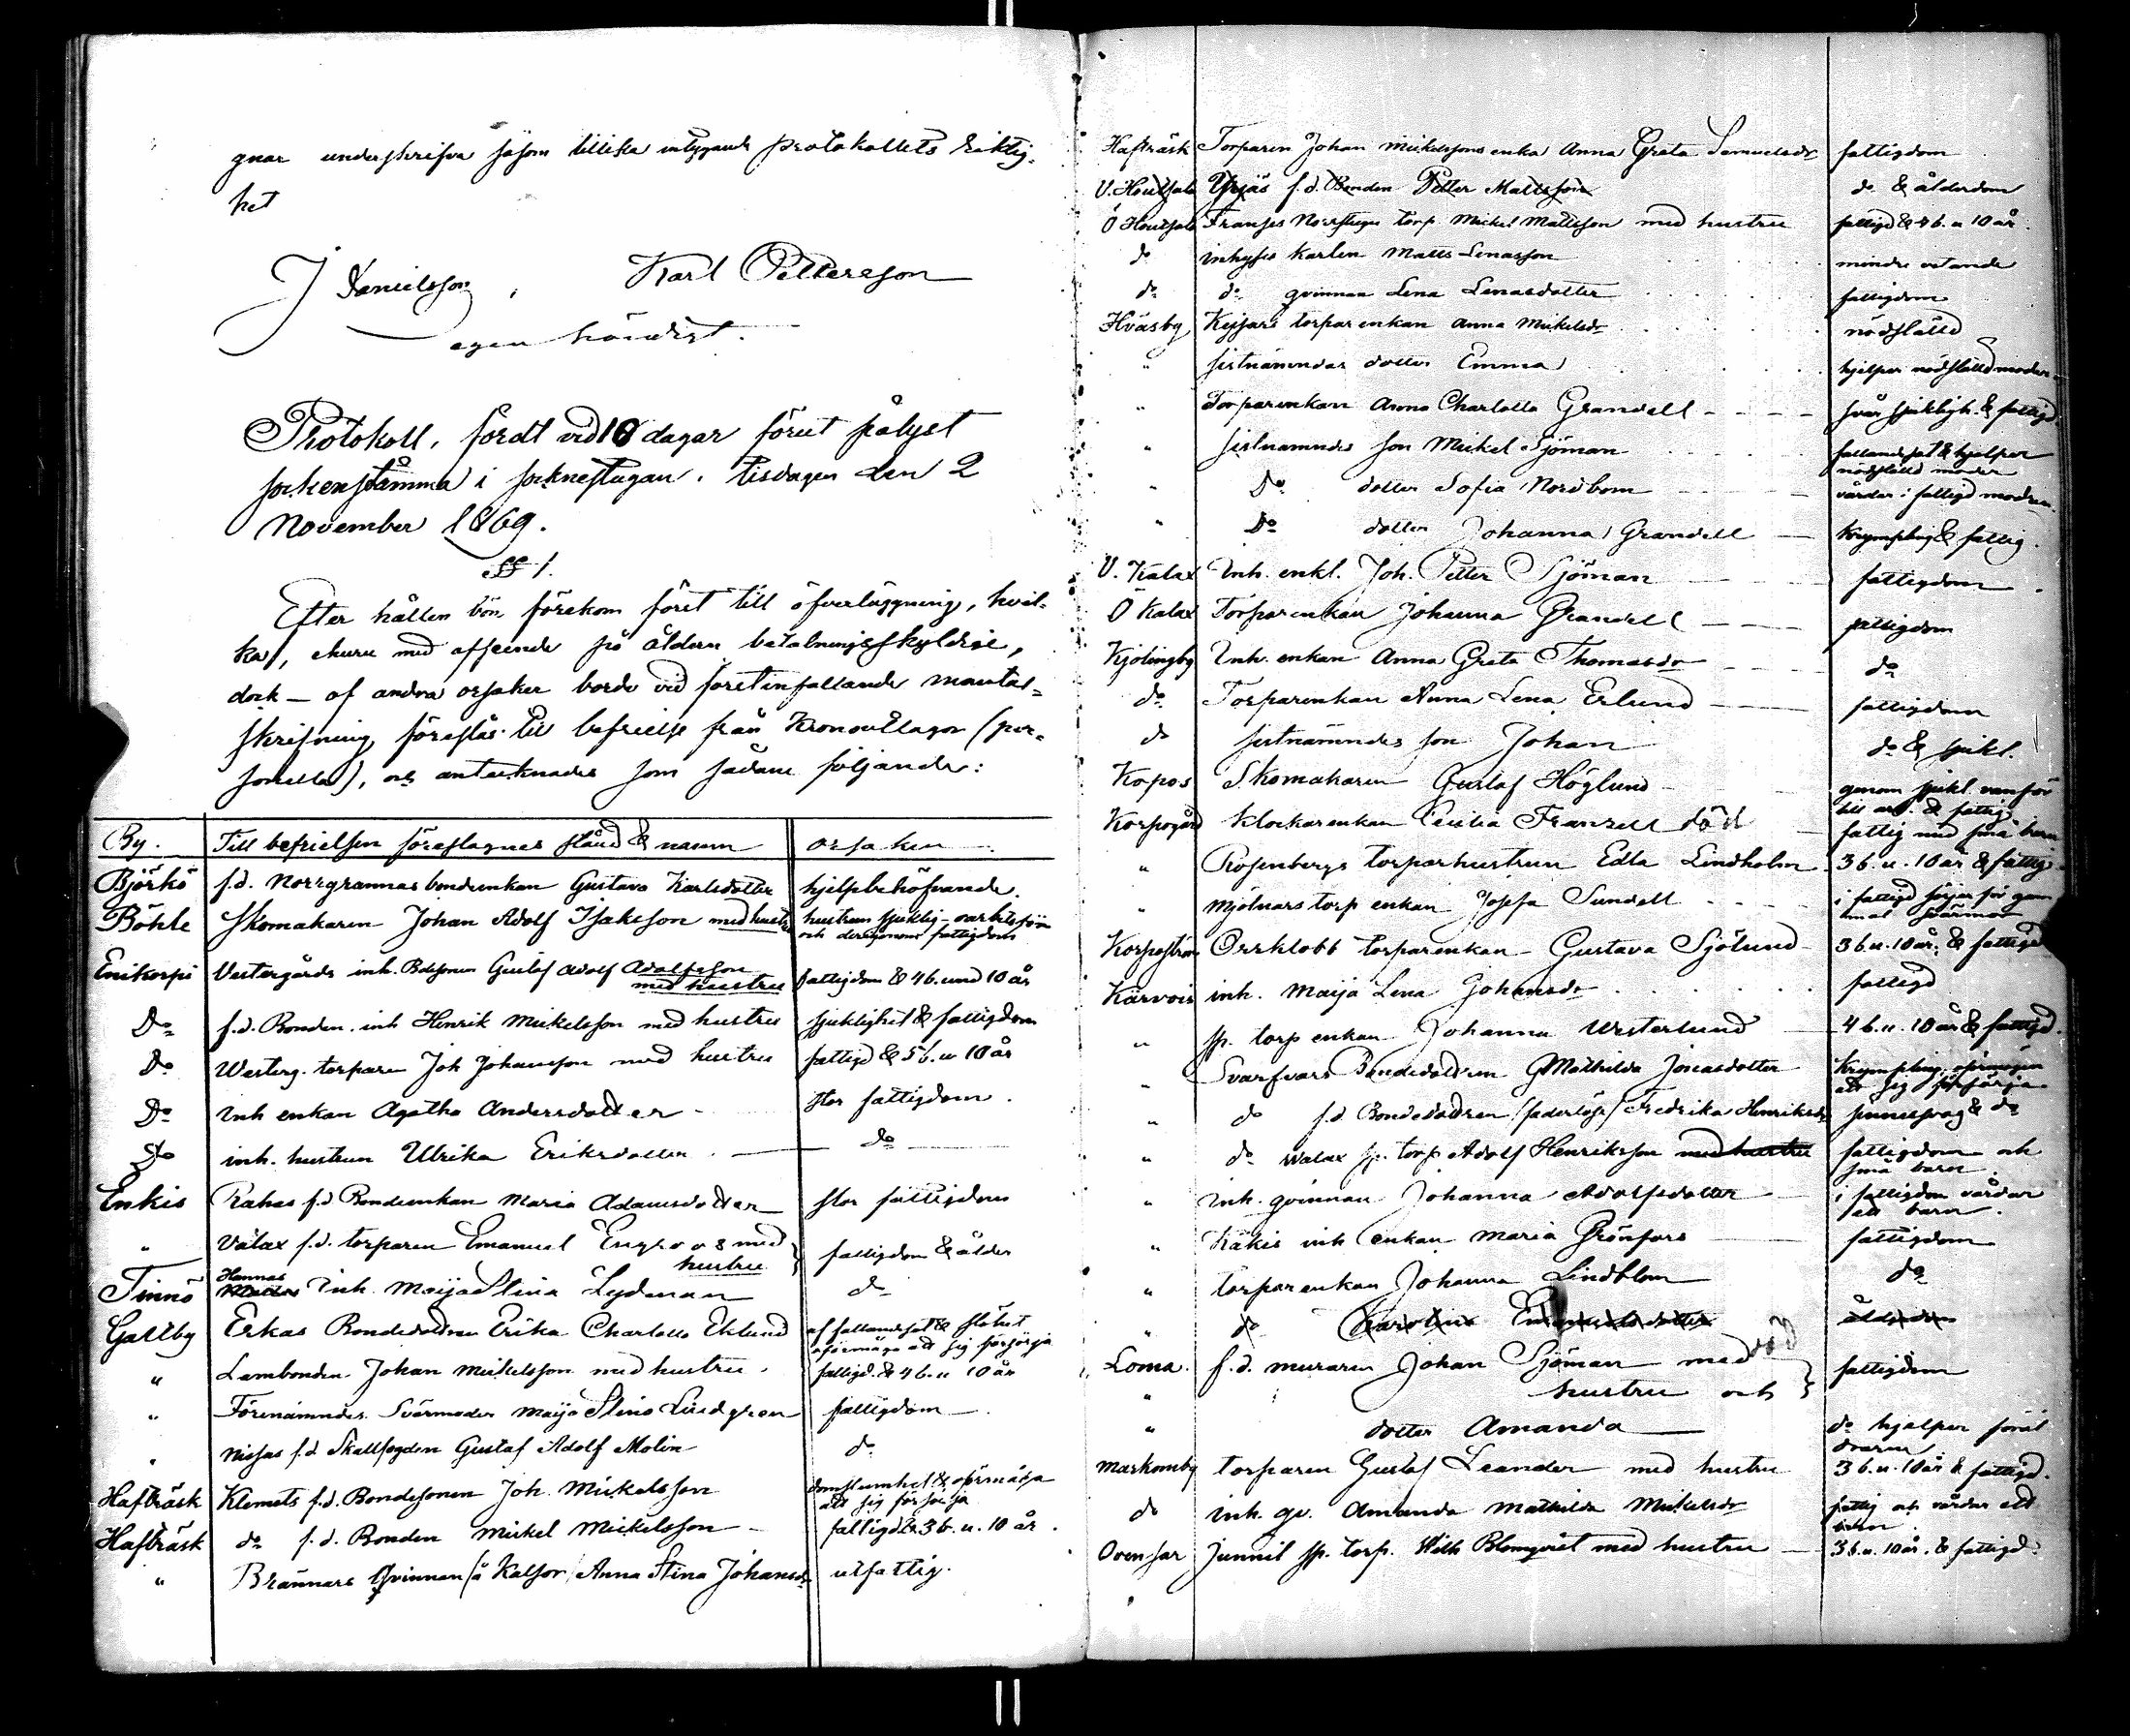 gnar underskrifva såsom tillika intygande protokollets riktig-
het
J Danielsson, Karl Pettersson
egen händigt.
Protokoll, fördt vid 10 dagar förut pålyst
sockenstämma i socknestugan, tisdagen den 2
November 1869.
§ 1.
Efter hållen bön förekom föret till öfverläggning, hvil-
ka, ehuru med afseende på åldern betalningsskyldige,
dock – af andra orsaker borde vid förestinfallande mantal-
skrifning föreslås till befrielse från Kronoutlagor (per-
sonella), och antecknades som sådane följande:
By. Till befrielsen föreslagnes stånd & namn orsaken
Björkö f.d. Norrgrannas bondeenkan Gustava Karlsdotter hjelpbehöfvande.
Böhle Skomakaren Johan Adolf Isaksson med hustru hustrun sjuklig – oarbetsför
och derigenom fattigdom
Enikorpi Vestergårds inh. Bdesonen Gustaf Adolf Adolfsson
med hustru fattigdom & 4 b. und 10 år
Do f.d. Bonden inh Henrik Mickelsson med hustru sjuklighet & fattigdom
Do Westerg. torparen Joh Johansson med hustru fattigd & 5 b. u 10 år
Do inh enkan Agatha Andersdotter stor fattigdom.
Do inh. hustrun Ulrika Eriksdotter do
Enkis Rahas f.d Bondeenkan Maria Adamsdotter stor fattigdom
" Valax f.d. torparen Emanuel Engroos med
hustru } fattigdom & ålder
Finnö Hannas inh. Maija Stina Lydman do
Gallby Erkas Bondedottren Erika Charlotta Eklund af fallandesot &
oförmåga att sig försörja
" Lambonden Johan Mickelsson med hustru. fattigd. & 4 b. u 10 år
" Förenämndes Svärmoder Maija Stina Lindgren fattigdom
" Nissas f.d. Skallfogden Gustaf Adolf Molin do
Hafträsk Klemets f.d. Bondesonen Joh. Mickelsson dombstumhet & oförmåga
att sig försörja
Hafträsk do f.d. Bonden Mickel Mickelsson fattigd & 3 b. u. 10 år.
" Brännars Qvinnan (å Kalfor) Anna Stina Johansdr utfattig.
Hafträsk Torparen Johan Mickelssons enka Anna Greta Samuelsdr fattigdom
V. Houtsala Yrjäs f.d. Bonden Petter Mattsson do & ålderdom
Ö Houtsala Franses Norrstuga torp. Mickel Mattsson med hustru fattigd & 4 b. u 10 år.
do inhyses karlen Matts Lenasson mindre vetande
do do qvinnan Lena Lenasdotter fattigdom
Hväsby Keisars torparenkan Anna Mickelsdr nödställd
" sistnämndas dotter Emma hjelper nödställd moder
" Torparenkan Anna Charlotta Grandell svår sjukligh. & fattigd.
" sistnämndes son Mickel Sjöman fallandesot & hjelper
nödställd moder
" Do dotter Sofia Nordbom vårdar i fattigd modren
" Do dotter Johanna Grandell Krympling & fattig.
V. Kalax Inh. enkl. Joh. Petter Sjöman fattigdom.
Ö Kalax Torparenkan Johanna Grandell fattigdom
Kjolingby Inh. enkan Anna Greta Thomasdr do
do Torparenkan Anna Lena Erlund fattigdom
do sistnämndes son Johan do & sjukl.
Kopos Skomakaren Gustaf Höglund genom sjukl. vanför
till arb. & fattig
Korpogård klockarenkan Cecilia Franzell död fattig med små barn
" Rosenbergs torparhustrun Edla Lindholm 3 b. u. 10 år & fattig
" Mjölnars torp enkan Josefa Sundell i fattigd sörjer för gam
mal svärmor
Korpoström Orrklobb torparenkan Gustava Sjölund 3 b. u. 10 år. & fattigd
Kärvois inh. Maija Lena Johansdr fattigd
" sp. torp enkan Johanna Westerlund 4 b. u. 10 år & fattigd.
" Svarfvars Bondedottren G Mathilda Jonasdotter Krympling, oförmögen
att sig försörja
" do f.d. Bondedottren (faderlösa) Fredrika Henriksdr sinnessvag & do
" do Walax sp. torp Adolf Henriksson med hustru fattigdom och
små barn
" inh. qvinnan Johanna Adolfsdotter i fattigdom vårdar
ett barn.
" Käkis inh enkan Maria Grönfors fattigdom
" torparenkan Johanna Lindblom do
" do Karolina Emanuelsdotter ålderdom
Loma. f.d. muraren Johan Sjöman med död
" hustru och } fattigdom
" dotter Amanda do hjelper föräl
drarne
Maskomby torparen Gustaf Leander med hustru 3 b. u. 10 år & fattigd.
do inh. qv. Amanda Mathilda Mickelsdr fattig och vårdar ett
barn.
Ovensor Junnil sp. torp. Wilh Blomqvist med hustru 3 b. u. 10 år. & fattigd.